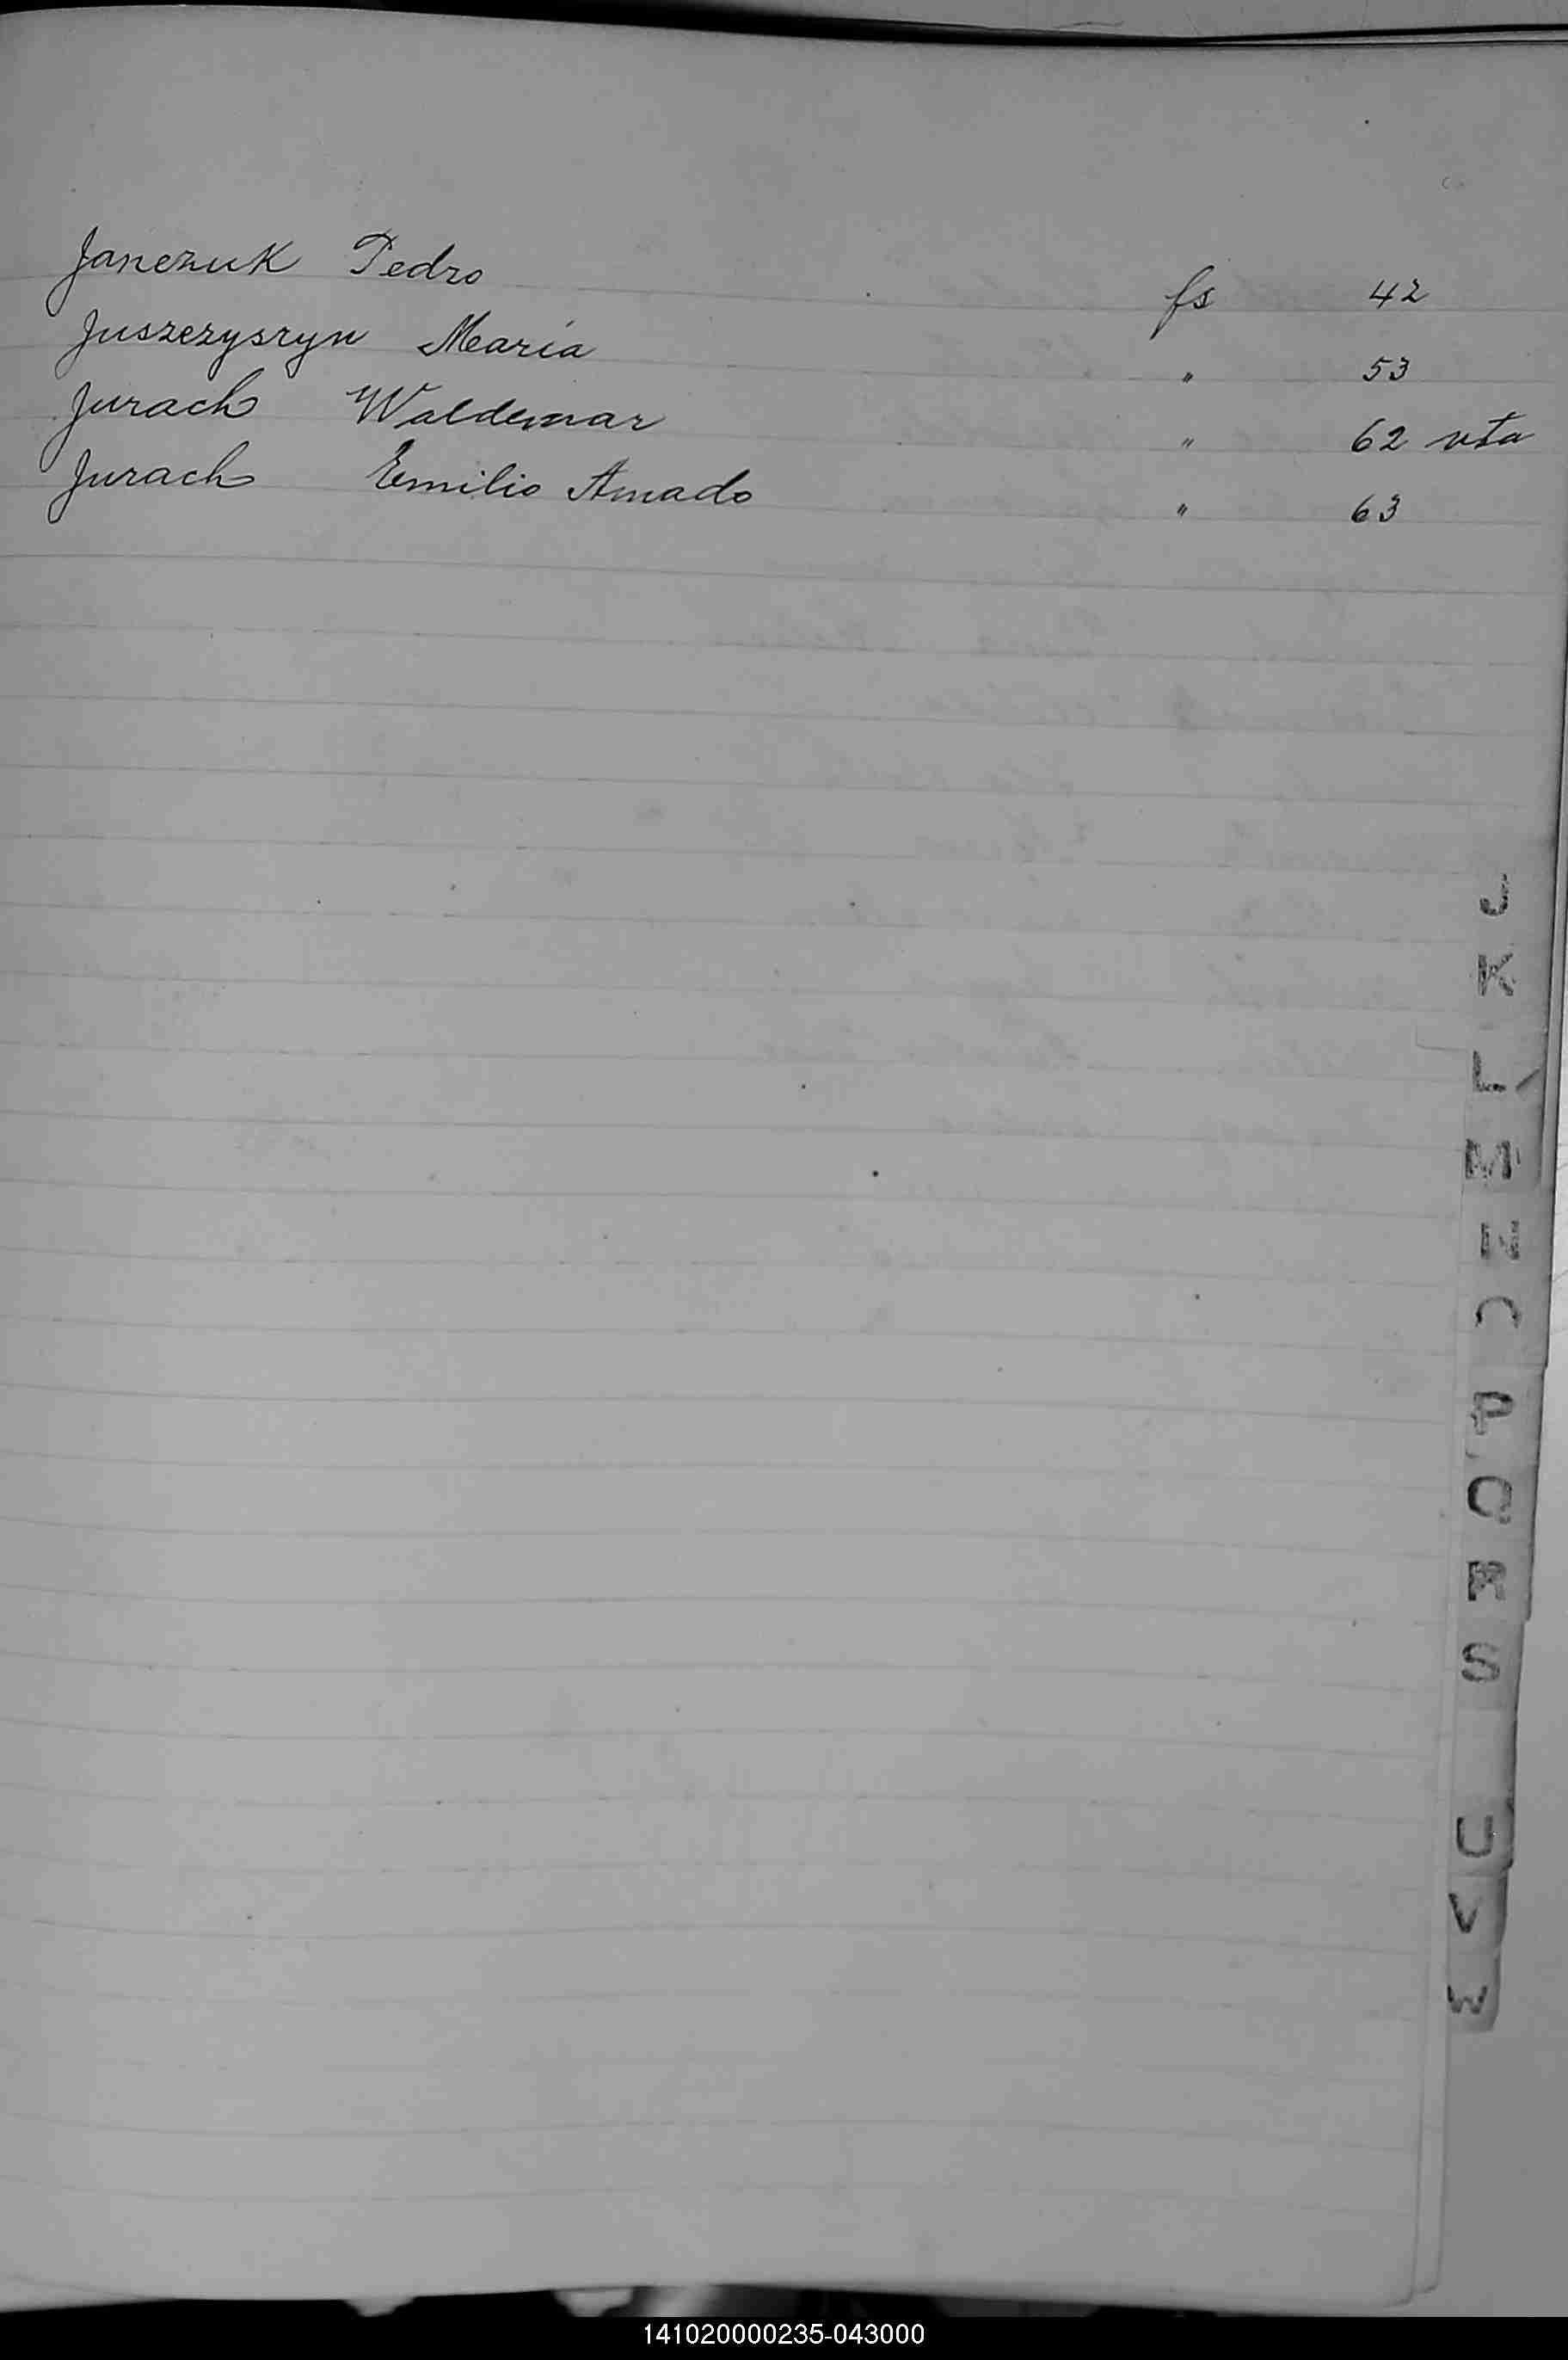 Janczuk Pedro fs 42
Juszczyszyn María " 53
Jurach Waldemar " 62 vta
Jurach Emilio Amado " 63
J
K
L
M
N
O
P
Q
R
S
U
V
W
141020000235-043000